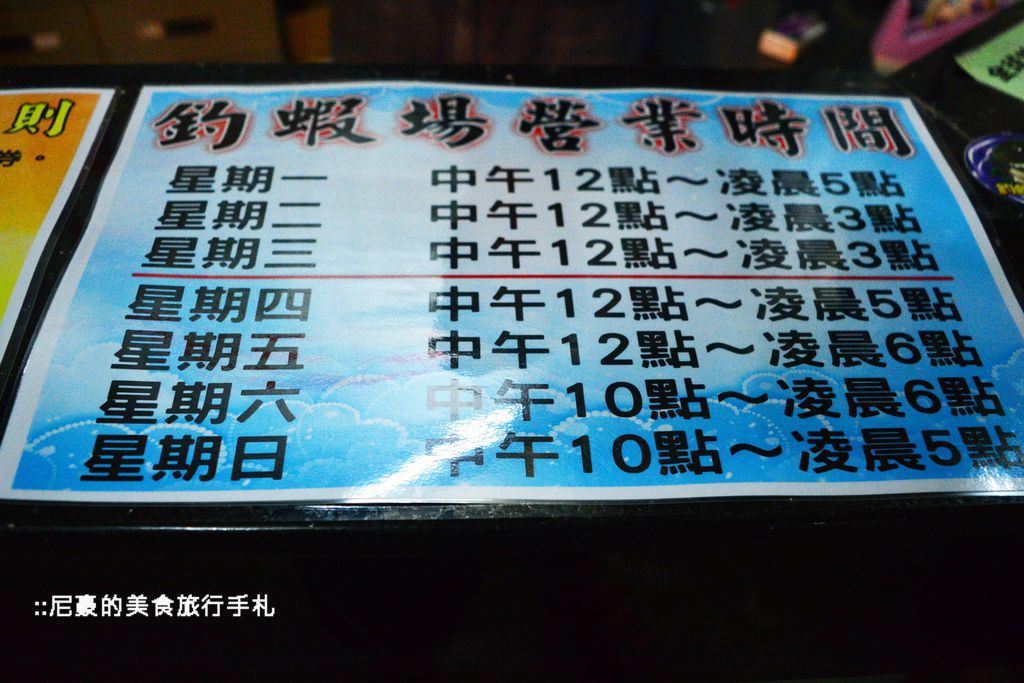 則
券。
釣蝦場營業時間
星期一 中午12點～凌晨5點
星期二 中午12點～凌晨3點
星期三 中午12點～凌晨3點
星期四 中午12點～凌晨5點
星期五 中午12點～凌晨6點
星期六 中午10點～凌晨6點
星期日 中午10點～凌晨5點
::尼豪的美食旅行手札